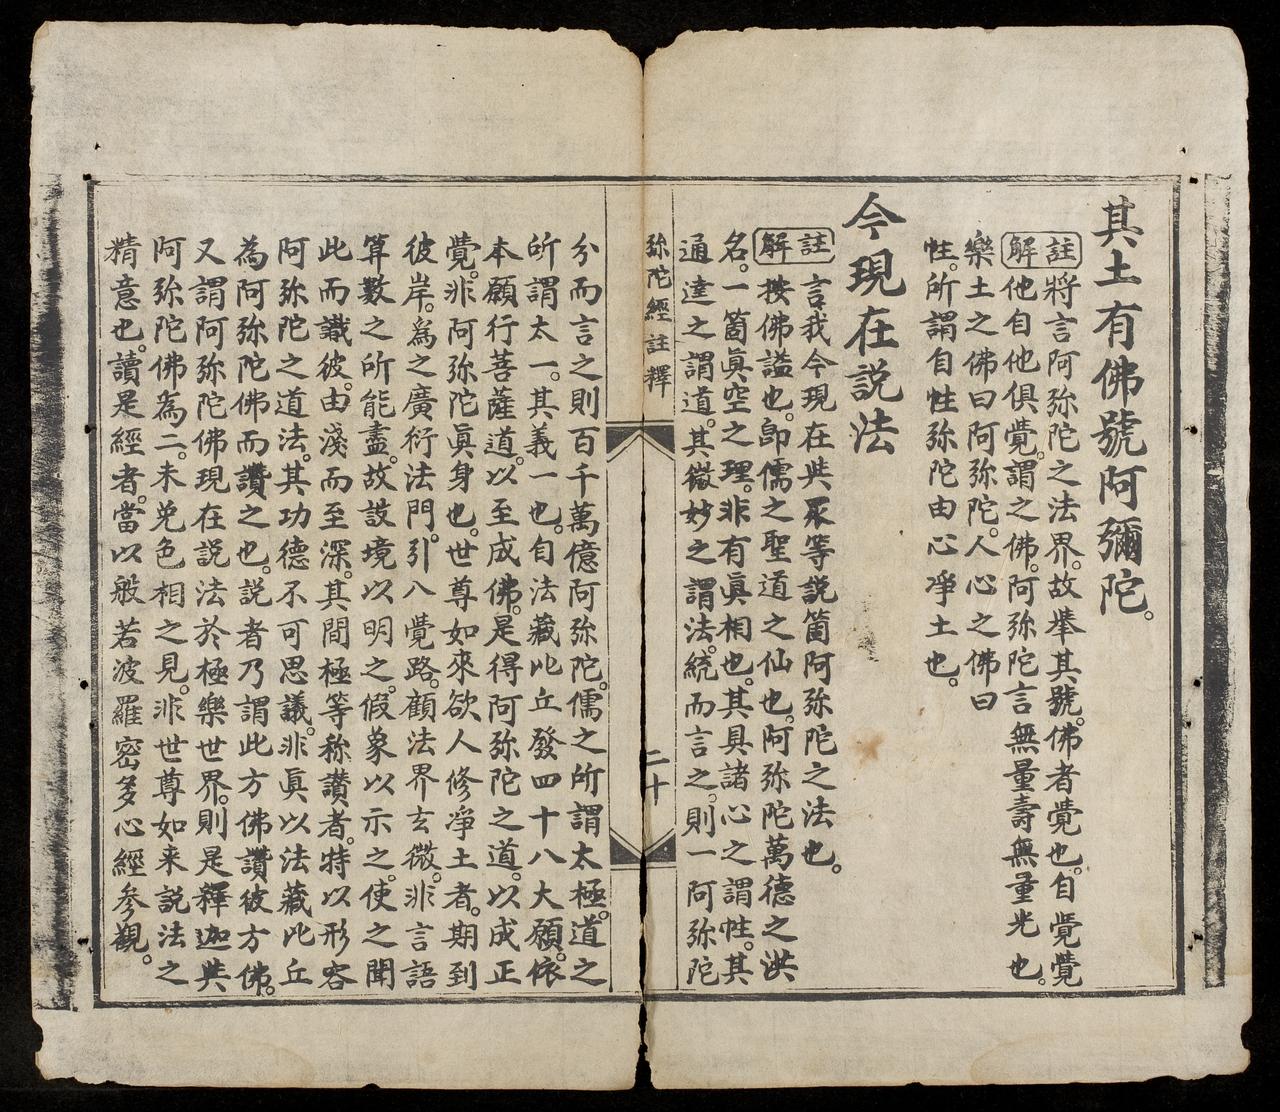 其土有佛號阿彌陀。
註解
將言阿弥陀之法界。故舉其號。佛者覺也。自覺覺
他自他俱覺。謂之佛。阿弥陀言無量壽無量光也。
樂土之佛曰阿弥陀。人心之佛曰
性。所謂自性弥陀由心淨土也。
今現在説法
註解
言我今現在與衆等説箇阿弥陀之法也。
按佛謚也。卽儒之聖道之仙也。阿弥陀萬德之洪
名。一箇眞空之理。非有眞相也。其具諸心之謂性。其
通達之謂道。其微妙之謂法。統而言之。則一阿弥陀
弥陀經註釋
二十
分而言之則百千萬億阿弥陀。儒之所謂太極。道之
所謂太一。其義一也。自法藏比丘發四十八大願。依
本願行菩薩道。以至成佛。是得阿弥陀之道。以成正
覺。非阿弥陀眞身也。世尊如來欲人修淨土者。期到
彼岸。為之廣衍法門。引入覺路。顧法界玄微。非言語
算數之所能盡。故設境以明之。假象以示之。使之聞
此而識彼。由淺而至深。其間極等称讚者。特以形容
阿弥陀之道法。其功德不可思議。非眞以法藏比丘
為阿弥陀佛而讚之也。説者乃謂此方佛讚彼方佛。
又謂阿弥陀佛現在説法於極樂世界。則是釋迦與
阿弥陀佛為二。未免色相之見。非世尊如来説法之
精意也。讀是經者。當以般若波羅密多心經參觀。